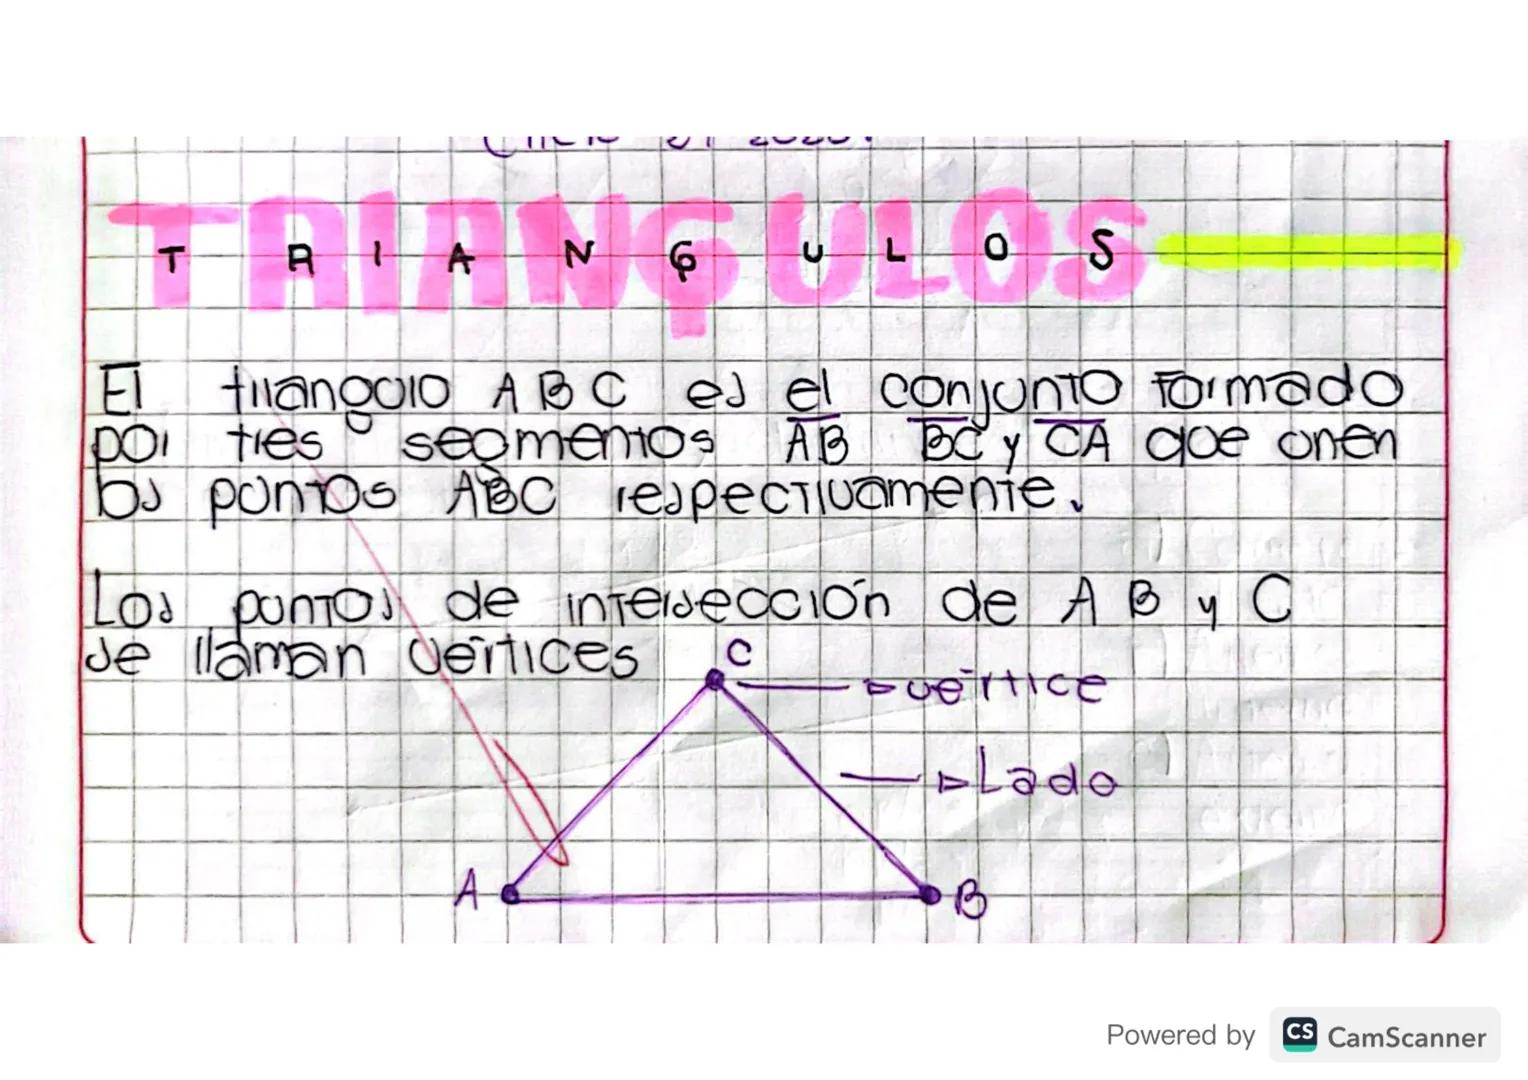 TRIANGULOS
El triangulo A B C es el conjunto formado
por tres segmentos AB BC y CA que unen
los puntos ABC respectivamente.
Los puntos de intersección de A B y C
se llaman vértices
C
vértice
Lado
A
B
Powered by CS CamScanner